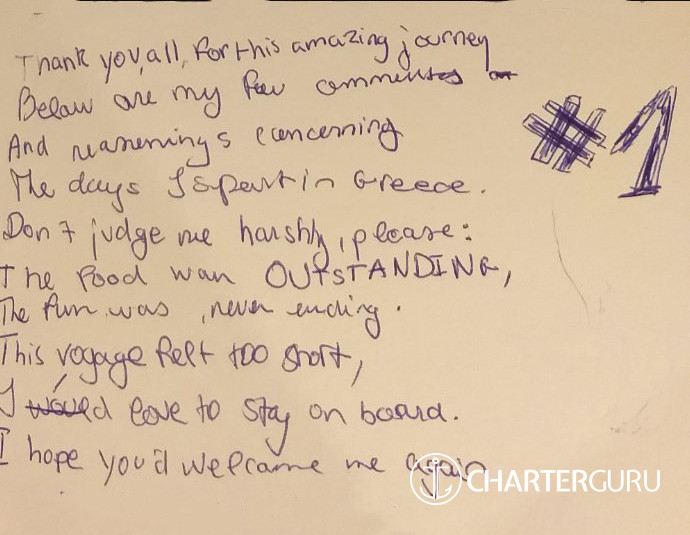 Thank you, all, for this amazing journey
Below are my few comments
And reasenings concerning
The days I spent in Greece.
#1
Don't judge me harshly, please:
The food was OUTSTANDING,
The fun was, never ending.
This voyage felt too short,
I'd love to stay on board.
I hope you'd welcome me again
CHARTERGURU